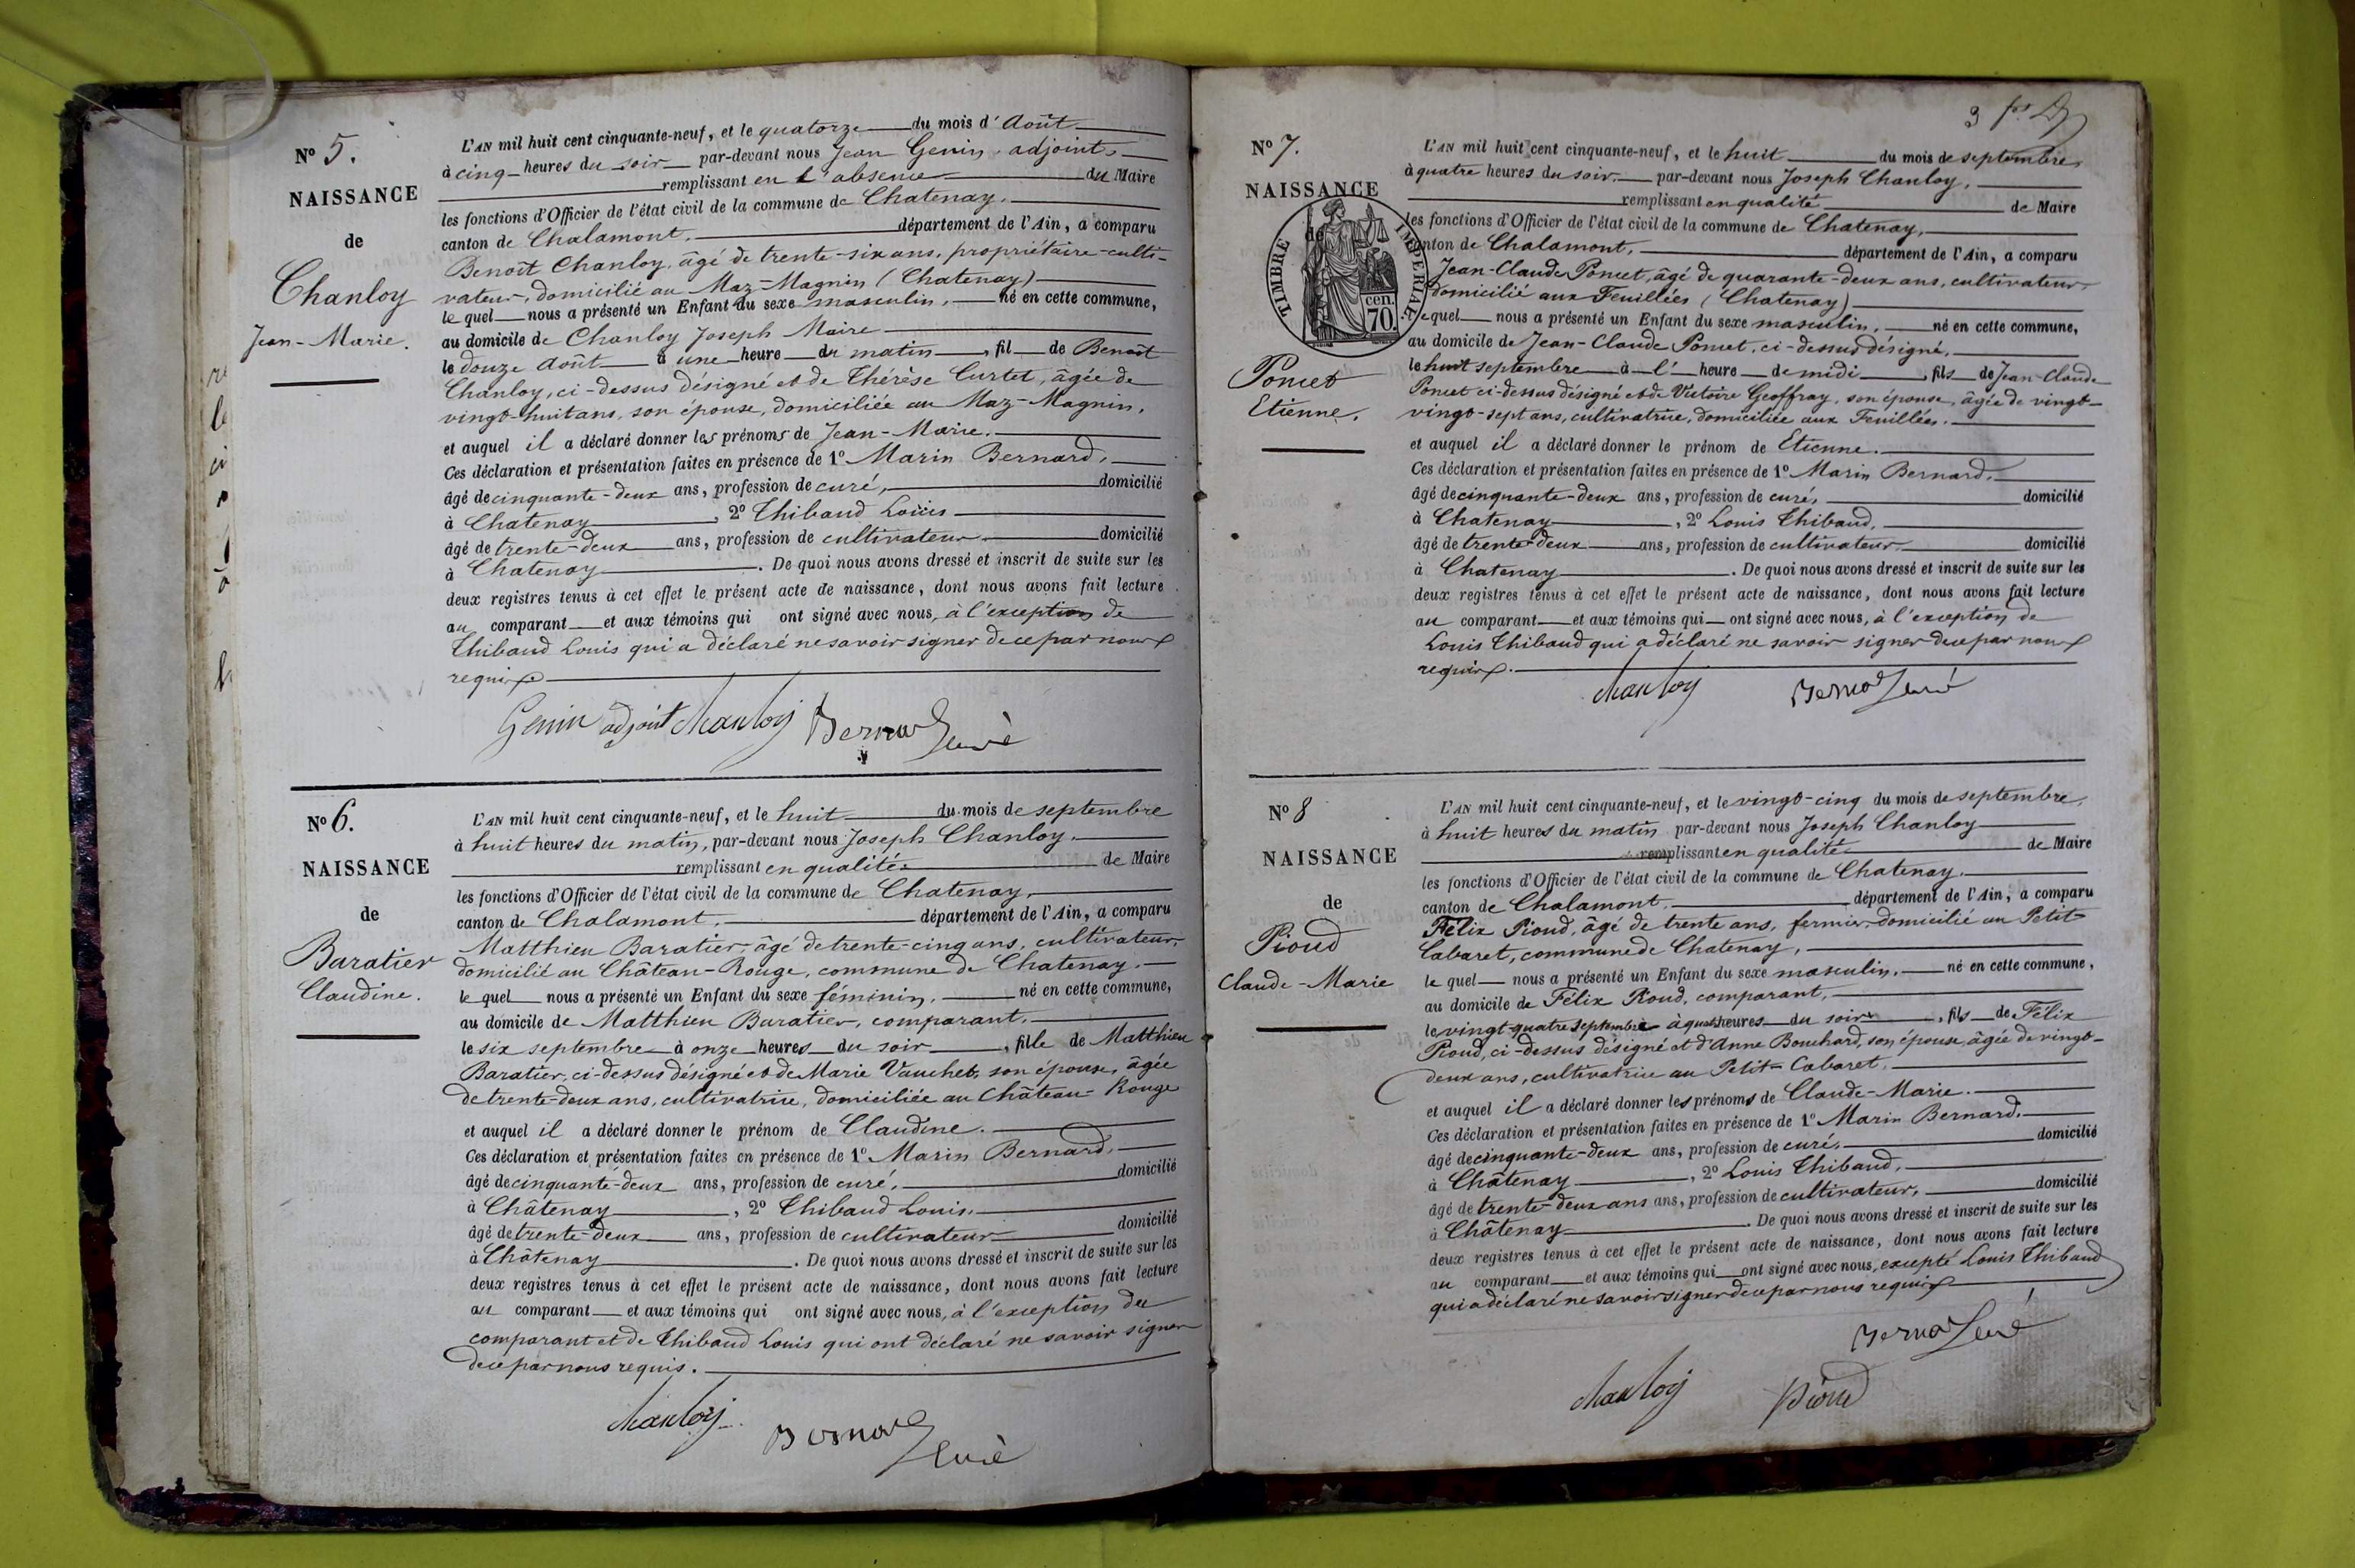 N° 5.
NAISSANCE
de
Chanloy
Jean-Marie.
L'AN mil huit cent cinquante-neuf, et le quatorze du mois d'Août
à cinq heures du soir par-devant nous Jean Genin, adjoint,
remplissant en l'absence du Maire
les fonctions d'Officier de l'état civil de la commune de Chatenay,
canton de Chalamont, département de l'Ain, a comparu
Benoît Chanloy, âgé de trente-six ans, propriétaire-culti-
vateur, domicilié au Maz-Magnin (Chatenay)
le quel nous a présenté un Enfant du sexe masculin, né en cette commune,
au domicile de Chanloy Joseph Maire
le douze Août à une heure du matin, fil de Benoît
Chanloy, ci-dessus désigné et de Thérèse Curtet, âgée de
vingt-huit ans, son épouse, domiciliée au Maz-Magnin,
et auquel il a déclaré donner les prénoms de Jean-Marie.
Ces déclaration et présentation faites en présence de 1° Marin Bernard,
âgé de cinquante-deux ans, profession de curé, domicilié
à Chatenay, 2° Thibaud Louis
âgé de trente-deux ans, profession de cultivateur domicilié
à Chatenay. De quoi nous avons dressé et inscrit de suite sur les
deux registres tenus à cet effet le présent acte de naissance, dont nous avons fait lecture
au comparant et aux témoins qui ont signé avec nous, à l'exception de
Thibaud Louis qui a déclaré ne savoir signer de ce par nous
requis
Genin adjoint Chanloy Bernard curé
N° 6.
NAISSANCE
de
Baratier
Claudine.
L'AN mil huit cent cinquante-neuf, et le huit du mois de septembre
à huit heures du matin, par-devant nous Joseph Chanloy,
remplissant en qualité de Maire
les fonctions d'Officier de l'état civil de la commune de Chatenay,
canton de Chalamont, département de l'Ain, a comparu
Matthieu Baratier, âgé de trente-cinq ans, cultivateur,
domicilié au Château-Rouge, commune de Chatenay.
le quel nous a présenté un Enfant du sexe féminin, né en cette commune,
au domicile de Matthieu Baratier, comparant,
le six septembre à onze heures du soir, fille de Matthieu
Baratier, ci-dessus désigné et de Marie Vauchet, son épouse, âgée
de trente-deux ans, cultivatrice, domiciliée au Château-Rouge
et auquel il a déclaré donner le prénom de Claudine.
Ces déclaration et présentation faites en présence de 1° Marin Bernard,
âgé de cinquante-deux ans, profession de curé, domicilié
à Châtenay, 2° Thibaud Louis,
âgé de trente-deux ans, profession de cultivateur domicilié
à Châtenay. De quoi nous avons dressé et inscrit de suite sur les
deux registres tenus à cet effet le présent acte de naissance, dont nous avons fait lecture
au comparant et aux témoins qui ont signé avec nous, à l'exception du
comparant et de Thibaud Louis qui ont déclaré ne savoir signer
de ce par nous requis.
Chanloy Bernard curé
3
N° 7.
NAISSANCE
de
TIMBRE IMPERIAL
cen.
70.
Poncet
Etienne.
L'AN mil huit cent cinquante-neuf, et le huit du mois de septembre,
à quatre heures du soir, par-devant nous Joseph Chanloy,
remplissant en qualité de Maire
les fonctions d'Officier de l'état civil de la commune de Chatenay,
canton de Chalamont, département de l'Ain, a comparu
Jean-Claude Poncet, âgé de quarante-deux ans, cultivateur
domicilié aux Feuillées (Chatenay)
lequel nous a présenté un Enfant du sexe masculin, né en cette commune,
au domicile de Jean-Claude Poncet, ci-dessus désigné,
le huit septembre à l' heure de midi, fils de Jean-Claude
Poncet ci-dessus désigné et de Victoire Geoffray, son épouse, âgée de vingt-
vingt-sept ans, cultivatrice, domiciliée aux Feuillées.
et auquel il a déclaré donner le prénom de Etienne.
Ces déclaration et présentation faites en présence de 1° Marin Bernard,
âgé de cinquante-deux ans, profession de curé, domicilié
à Chatenay, 2° Louis Thibaud,
âgé de trente-deux ans, profession de cultivateur domicilié
à Chatenay. De quoi nous avons dressé et inscrit de suite sur les
deux registres tenus à cet effet le présent acte de naissance, dont nous avons fait lecture
au comparant et aux témoins qui ont signé avec nous, à l'exception de
Louis Thibaud qui a déclaré ne savoir signer de ce par nous
requis.
Chanloy Bernard curé
N° 8
NAISSANCE
de
Pioud
Claude-Marie
L'AN mil huit cent cinquante-neuf, et le vingt-cinq du mois de septembre,
à huit heures du matin par-devant nous Joseph Chanloy
remplissant en qualité de Maire
les fonctions d'Officier de l'état civil de la commune de Chatenay,
canton de Chalamont, département de l'Ain, a comparu
Félix Pioud, âgé de trente ans, fermier, domicilié au Petit-
Cabaret, commune de Chatenay,
le quel nous a présenté un Enfant du sexe masculin, né en cette commune,
au domicile de Félix Pioud, comparant,
le vingt-quatre septembre à quatre heures du soir, fils de Félix
Pioud, ci-dessus désigné et d'Anne Bouchard, son épouse, âgée de vingt-
deux ans, cultivatrice au Petit-Cabaret.
et auquel il a déclaré donner les prénoms de Claude-Marie.
Ces déclaration et présentation faites en présence de 1° Marin Bernard,
âgé de cinquante-deux ans, profession de curé, domicilié
à Châtenay, 2° Louis Thibaud,
âgé de trente-deux ans ans, profession de cultivateur, domicilié
à Châtenay. De quoi nous avons dressé et inscrit de suite sur les
deux registres tenus à cet effet le présent acte de naissance, dont nous avons fait lecture
au comparant et aux témoins qui ont signé avec nous, excepté Louis Thibaud
qui a déclaré ne savoir signer de ce par nous requis
Bernard curé
Chanloy Pioud